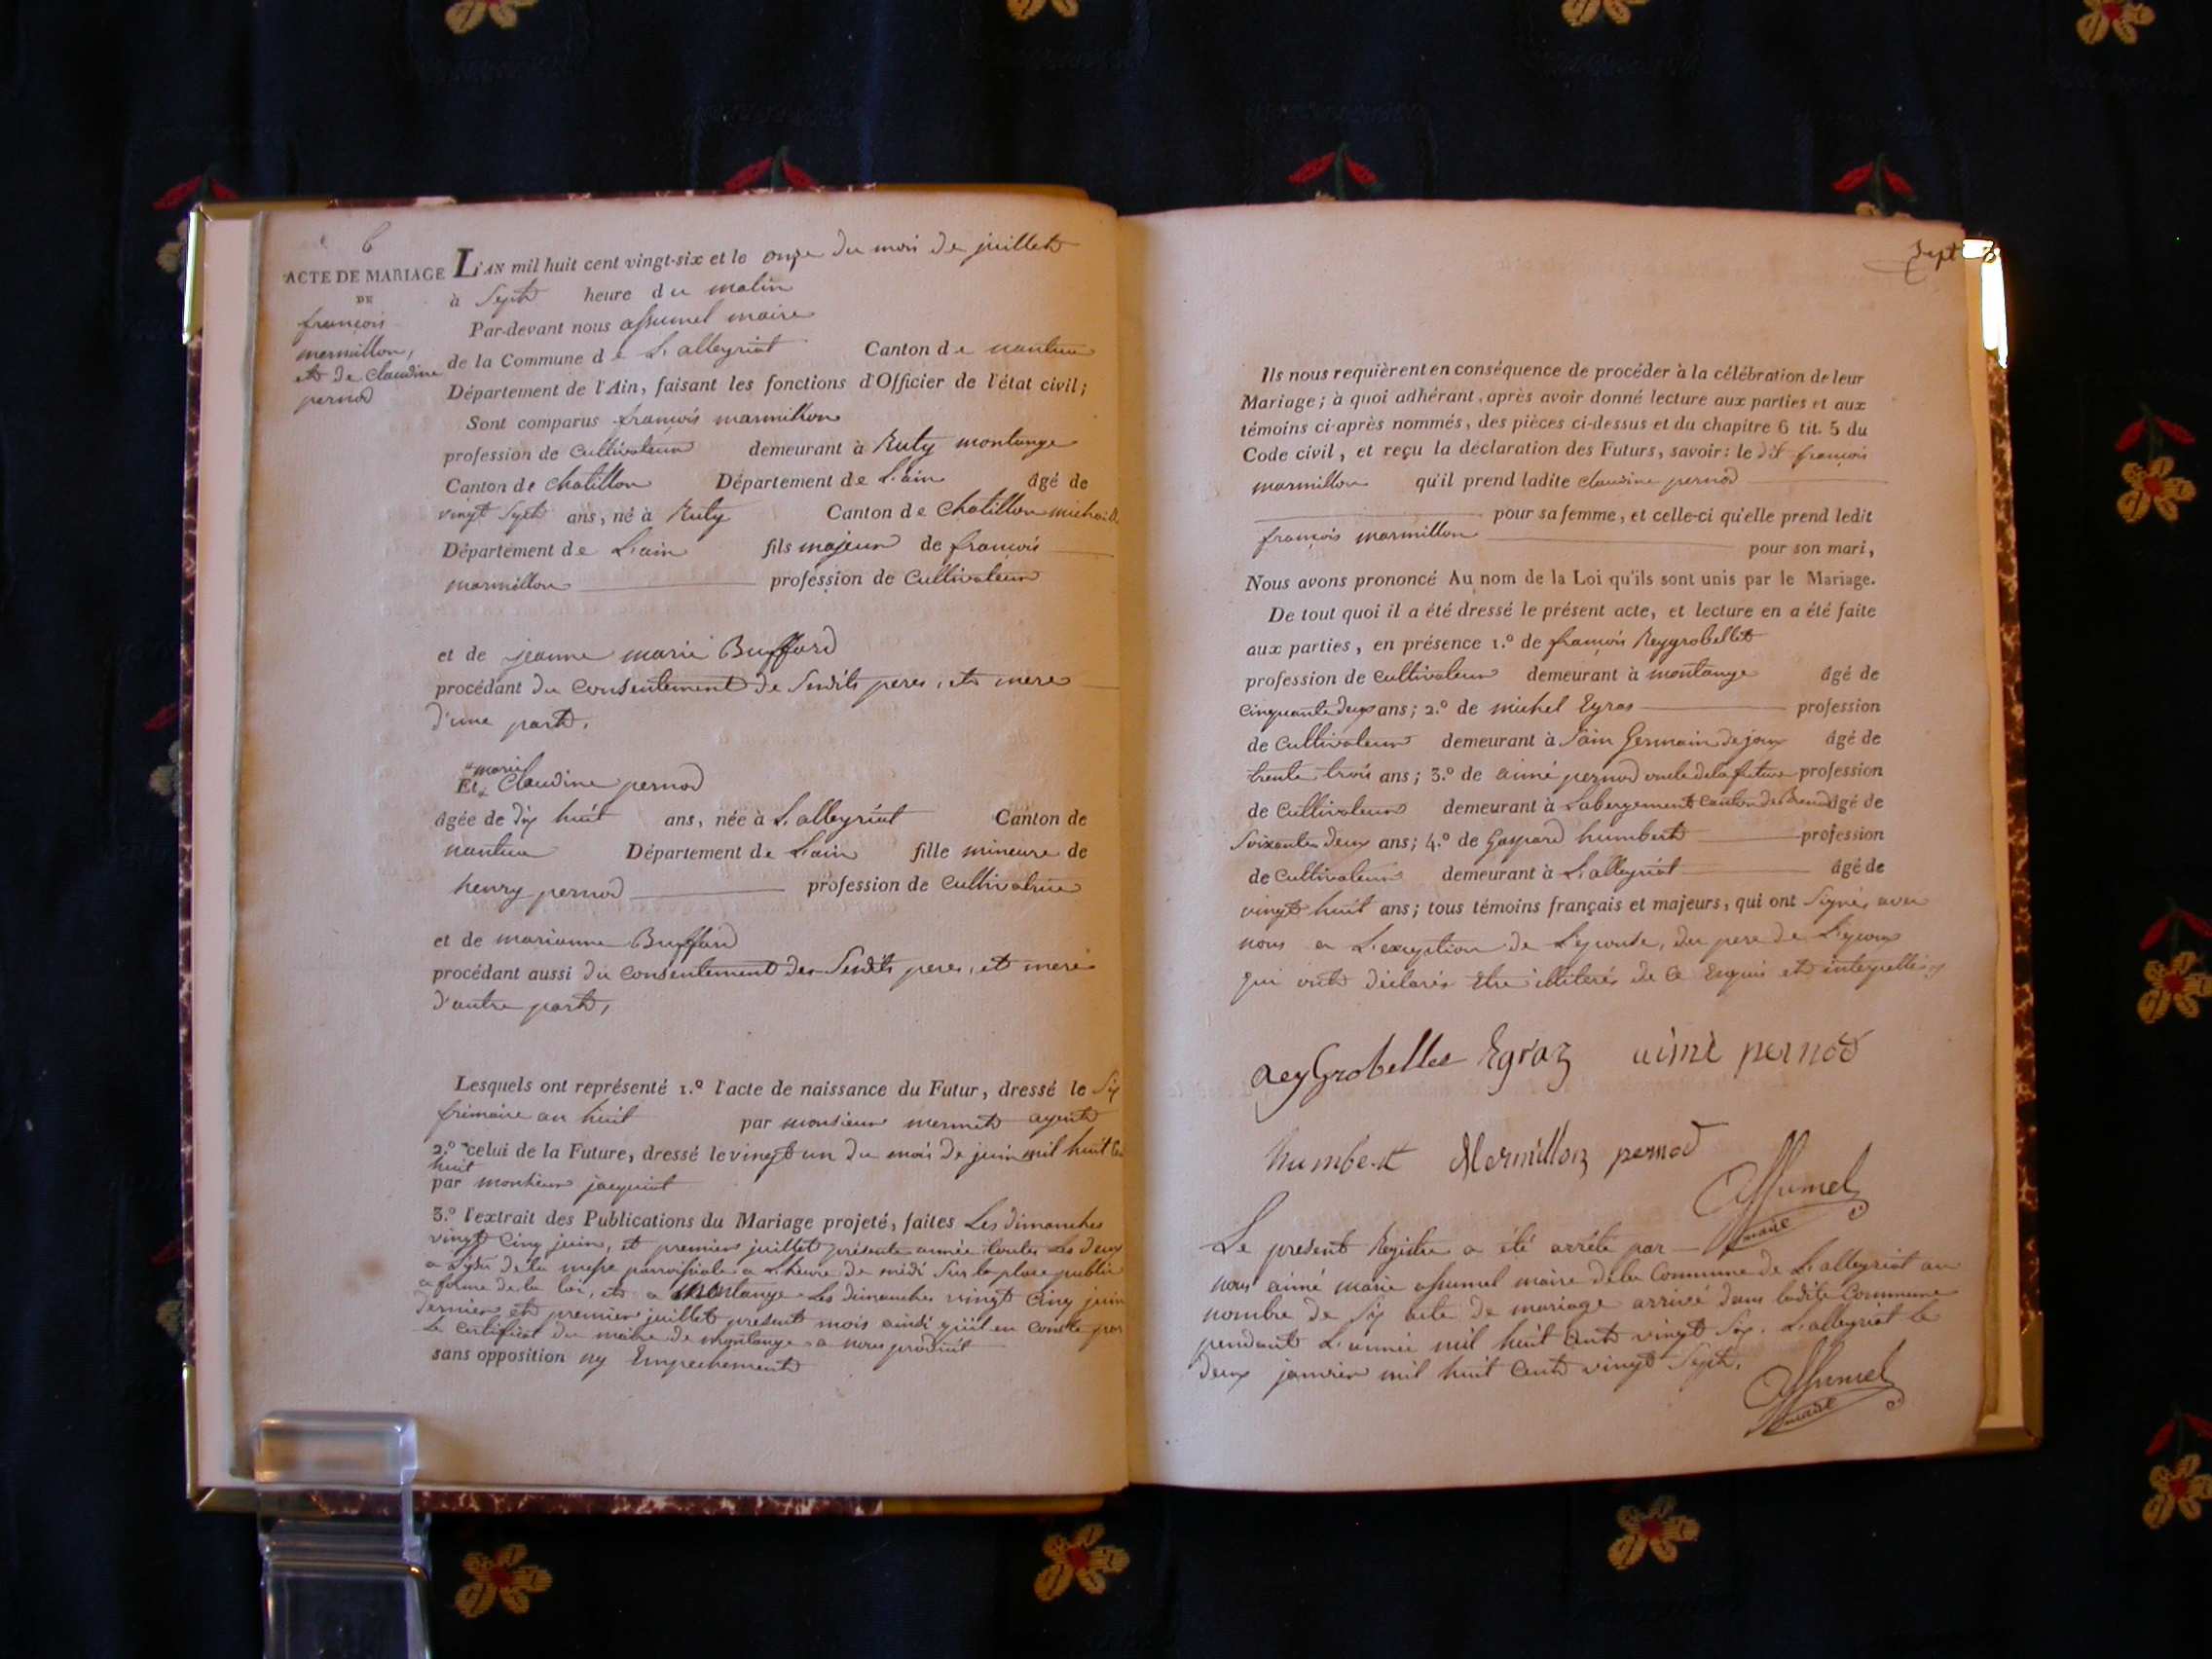 6
ACTE DE MARIAGE
DE
françois
mermillon,
et de Claudine
pernod
L'AN mil huit cent vingt-six et le onze du mois de juillet
à Sept heure du matin
Par-devant nous assumel maire
de la Commune de L'alleyriat Canton de nantua
Département de l'Ain, faisant les fonctions d'Officier de l'état civil;
Sont comparus françois marmillon
profession de Cultivateur demeurant à Ruty montange
Canton de Chatillon Département de L'ain âgé de
vingt Sept ans, né à Ruty Canton de Chatillon michaille
Département de L'ain fils majeur de françois
marmillon profession de Cultivateur
et de jeanne marie Buffard
procédant du Consentement de Sesdits peres, et mere
d'une part,
marie
Et Claudine pernod
âgée de dix huit ans, née à L'alleyriat Canton de
nantua Département de L'ain fille mineure de
henry pernod profession de Cultivatrice
et de marianne Buffard
procédant aussi du Consentement des Sesdits peres, et mere
d'autre part,
Lesquels ont représenté 1.º l'acte de naissance du Futur, dressé le Six
frimaire an huit par monsieur mermet agent
2.º celui de la Future, dressé le vingt un du mois de juin mil huit Cent
huit
par monsieur jacquiot
3.º l'extrait des Publications du Mariage projeté, faites Les dimanches
vingt Cinq juin, et premier juillet présente année toutes Les deux
a L'issu de la messe parroissiale a L'heure de midi Sur la place public
a forme de la loi, et a montange Les dimanches vingt Cinq juin
dernier et premier juillet present mois ainsi qu'il en Conste par
Le Certificat du maire de montange a nous produit
sans opposition ny Empechement
Sept
Ils nous requièrent en conséquence de procéder à la célébration de leur
Mariage; à quoi adhérant, après avoir donné lecture aux parties et aux
témoins ci-après nommés, des pièces ci-dessus et du chapitre 6 tit. 5 du
Code civil, et reçu la déclaration des Futurs, savoir: le dit françois
marmillon qu'il prend ladite Claudine pernod
pour sa femme, et celle-ci qu'elle prend ledit
françois marmillon
pour son mari,
Nous avons prononcé Au nom de la Loi qu'ils sont unis par le Mariage.
De tout quoi il a été dressé le présent acte, et lecture en a été faite
aux parties, en présence 1.º de françois Reygrobellet
profession de Cultivateur demeurant à montange âgé de
Cinquante deux ans; 2.º de michel Egras profession
de Cultivateur demeurant à Sain Germain de joux âgé de
trente trois ans; 3.º de aimé pernod oncle de la future profession
de Cultivateur demeurant à Labergement Canton de Brenod âgé de
Soixante deux ans; 4.º de Gaspard humbert profession
de Cultivateur demeurant à L'alleyriat âgé de
vingt huit ans; tous témoins français et majeurs, qui ont Signés avec
nous a L'exception de L'epouse, du pere de L'epoux
qui ont déclarés Etre illiterés de Ce Enquis et interpellés
ReyGrobellet Egraz aimé pernod
humbert Mermillon pernod
Assumel
maire
Le present Registre a été arrêté par
nous aimé marie assumel maire de la Commune de L'alleyriat au
nombre de Six acte de mariage arrivé dans ladite Commune
pendant L'année mil huit Cent vingt Six. L'alleyriat le
deux janvier mil huit Cent vingt Sept.
Assumel
maire